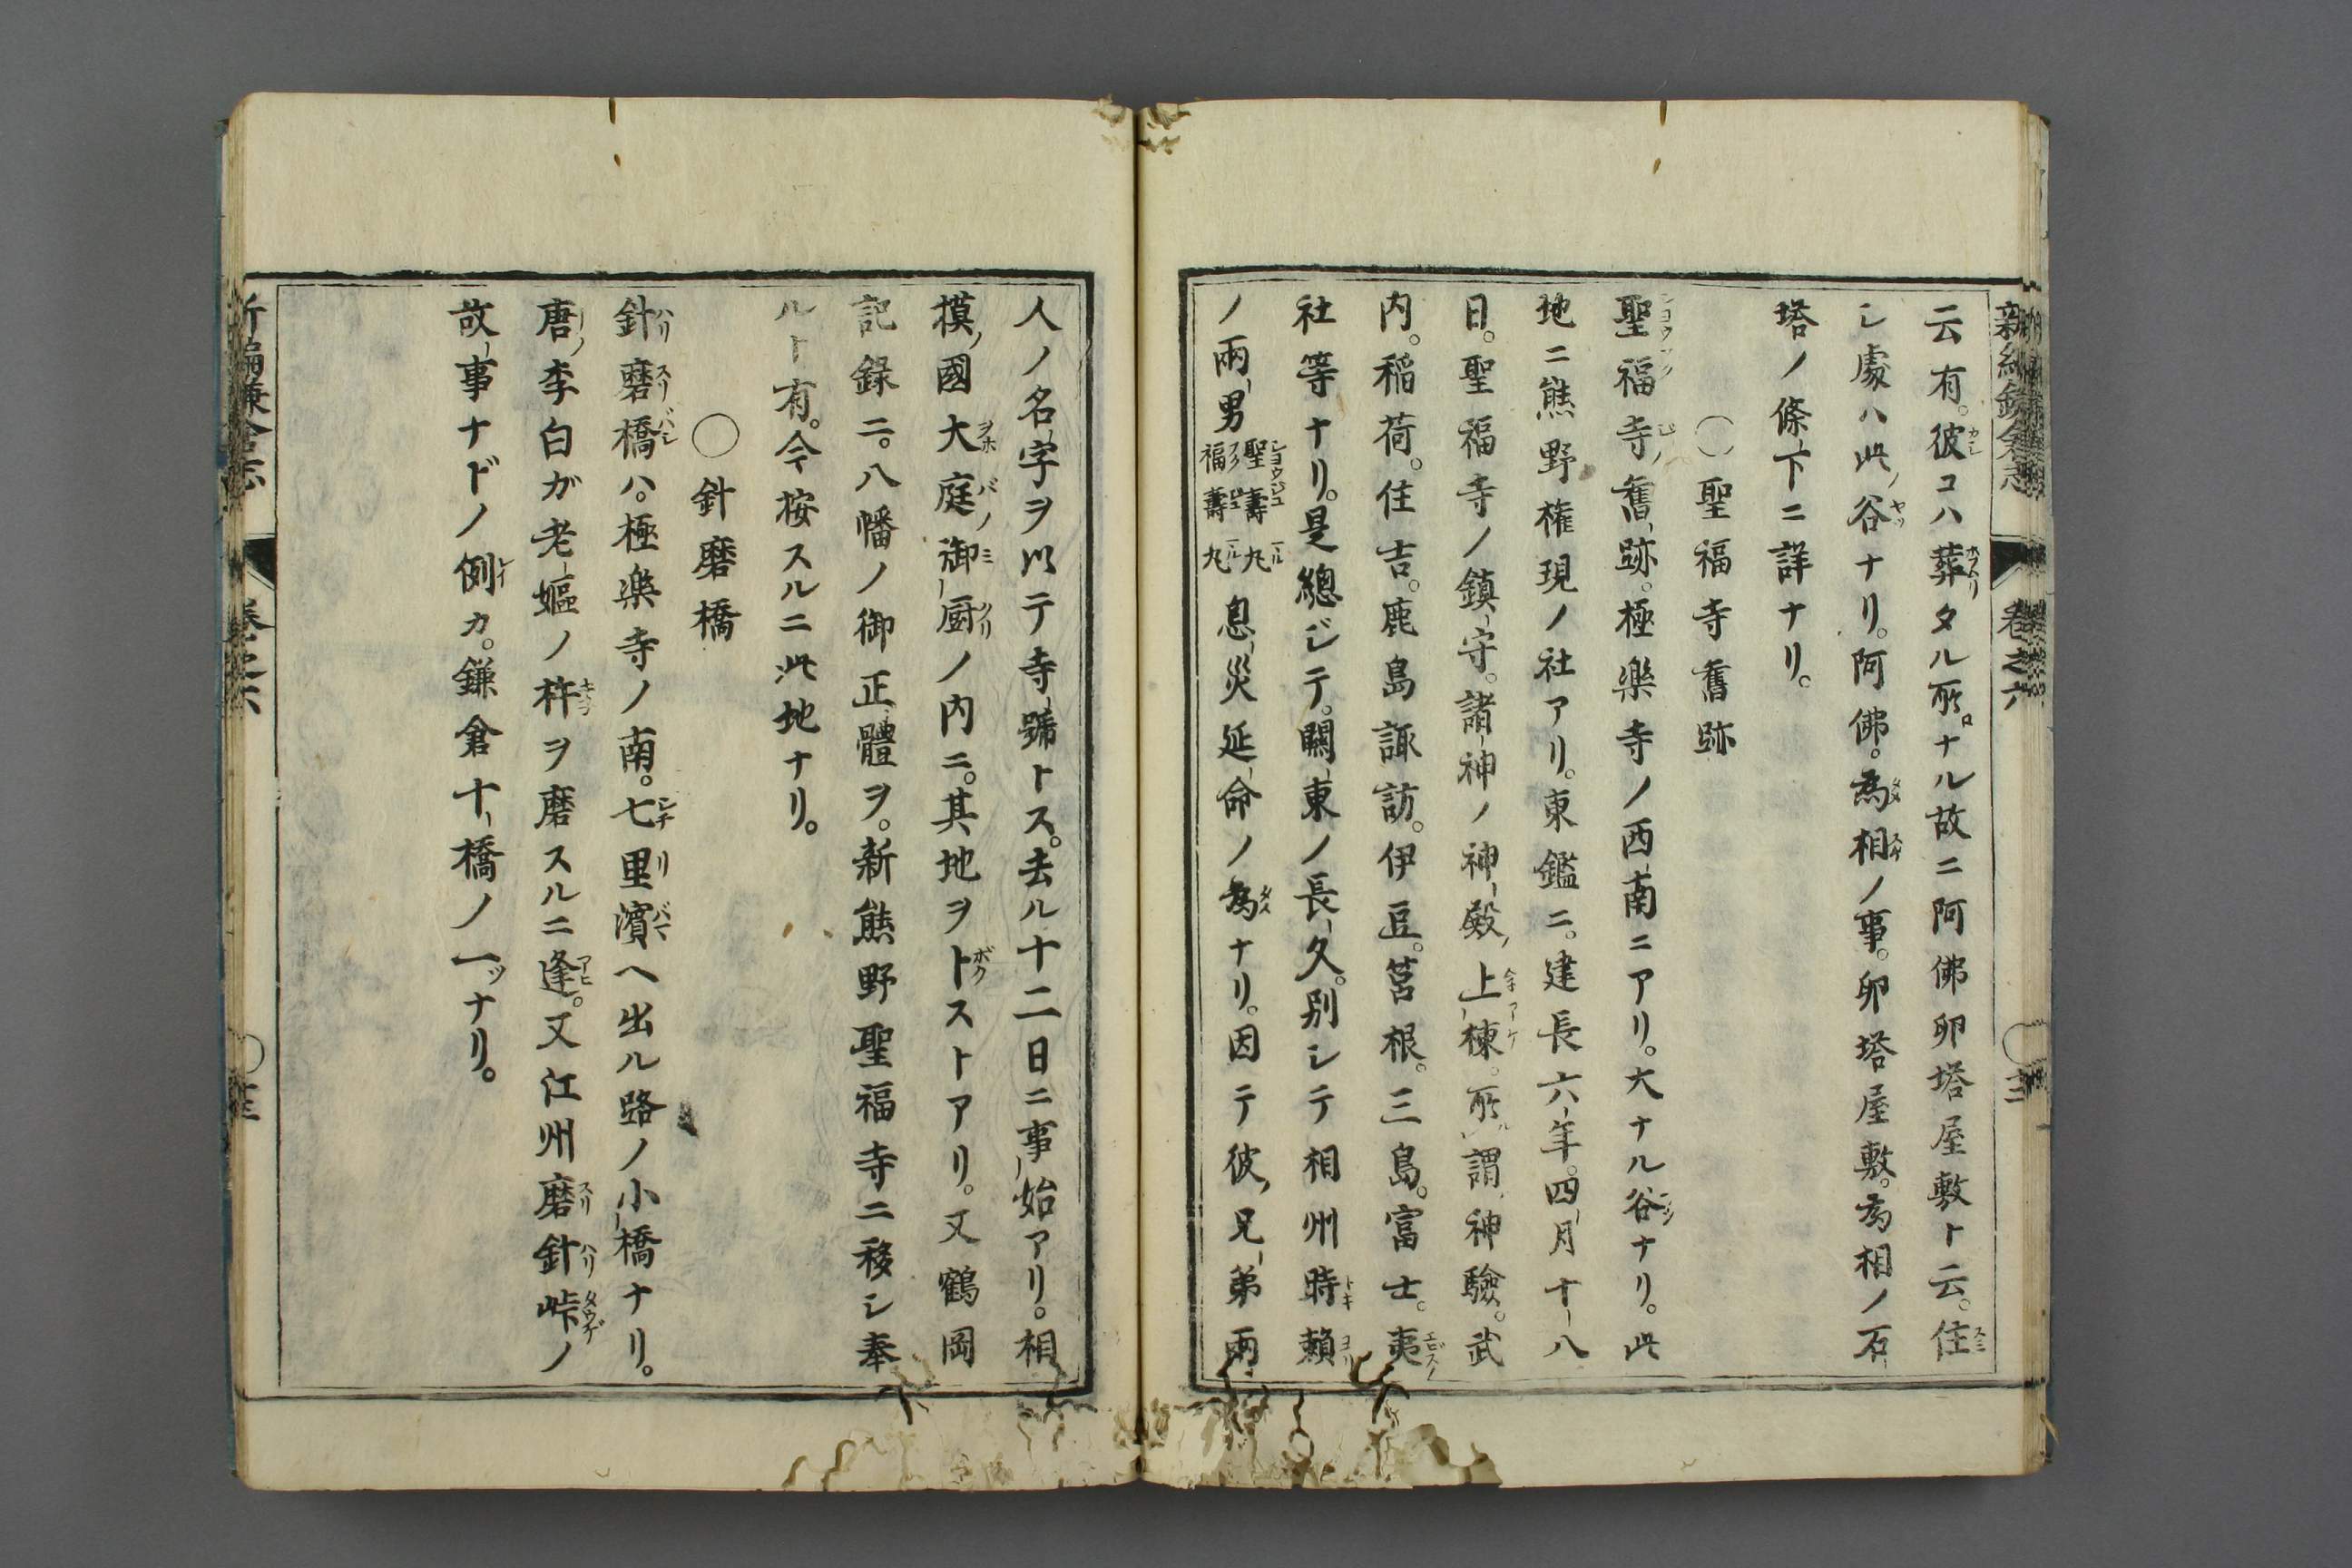 云有。彼コハ葬タル所。ナル故ニ阿佛卵塔屋敷ト云。住
シ處ハ此谷ナリ。阿佛。為相ノ事。卵塔屋敷。為相ノ石
塔ノ條下ニ詳ナリ。
〇聖福寺舊跡
聖福寺舊跡。極樂寺ノ西南ニアリ。大ナル谷ナリ。此
地ニ熊野権現ノ社アリ。東鑑ニ。建長六年。四月十八
日。聖福寺ノ鎮守。諸神ノ神殿上棟。所謂神驗。武
内。稲荷。住吉。鹿島諏訪。伊豆。筥根。三島。富士。夷
社等ナリ。是總ジテ。關東ノ長久。別シテ相州時頼
ノ兩男聖壽丸福壽丸息災延命ノ為ナリ。因テ彼兄弟兩
人ノ名字ヲ以テ寺號トス。去ル十二日ニ事始アリ。相
模國大庭御厨ノ内ニ。其地ヲトストアリ。又鶴岡
記録ニ。八幡ノ御正體ヲ。新熊野聖福寺ニ移シ奉
ルト有。今按スルニ此地ナリ。
〇針磨橋
針磨橋ハ。極楽寺ノ南。七里濱ヘ出ル路ノ小橋ナリ。
唐李白ガ老嫗ノ杵ヲ磨スルニ逢。又江州磨針峠ノ
故事ナドノ例カ。鎌倉十橋ノ一ッナリ。
新編鎌倉志
卷之六